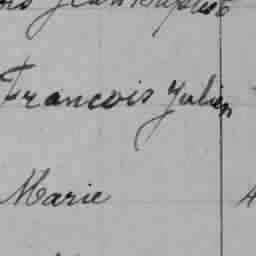 Jean Baptiste
Francois Julien
Marie 4